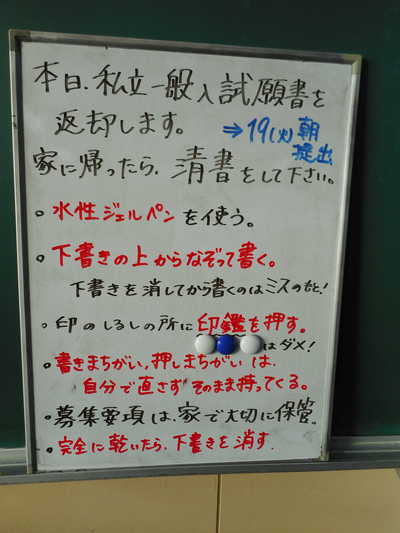 本日、私立一般入試願書を
返却します。
⇒19(火)朝
提出
家に帰ったら、清書をして下さい。
○水性ジェルペンを使う。
○下書きの上からなぞって書く。
下書きを消してから書くのはミスのもと!
○印のしるしの所に印鑑を押す。
はダメ!
○書きまちがい,押しまちがいは、
自分で直さずそのまま持ってくる。
○募集要項は、家で大切に保管。
○完全に乾いたら、下書きを消す.